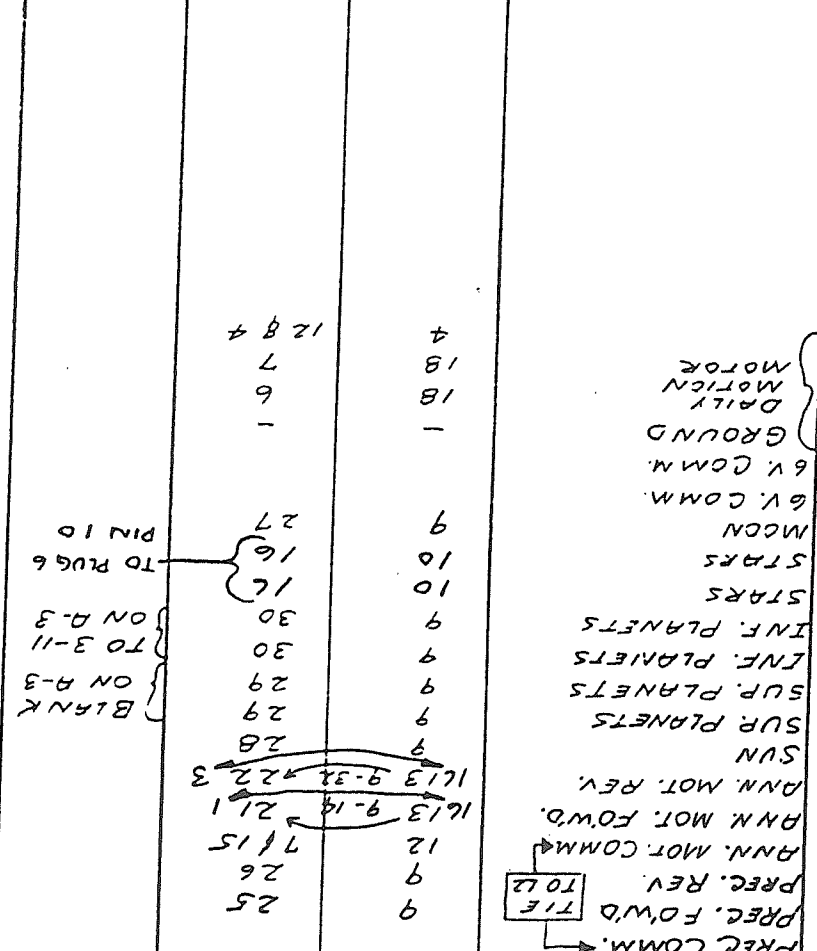 PREC COMM.
PREC. FO'W'D TIE 9 25
PREC. REV. TO L2 9 26
ANN. MOT. COMM. 12 7 & 15
ANN. MOT. FO'W'D. 1613 9-14 21 1
ANN. MOT. REV. 1613 9-32 22 3
SUN 9 28
SUP. PLANETS 9 29 BLANK
SUP. PLANETS 9 29 ON A-3
INF. PLANETS 9 30 TO 3-11
INF. PLANETS 9 30 ON A-3
STARS 10 16
STARS 10 16 TO PLUG 6
MOON 9 27 PIN 10
6V. COMM.
6V. COMM.
GROUND - -
DAILY 18 6
MOTION 18 7
MOTOR 4 12 & 4